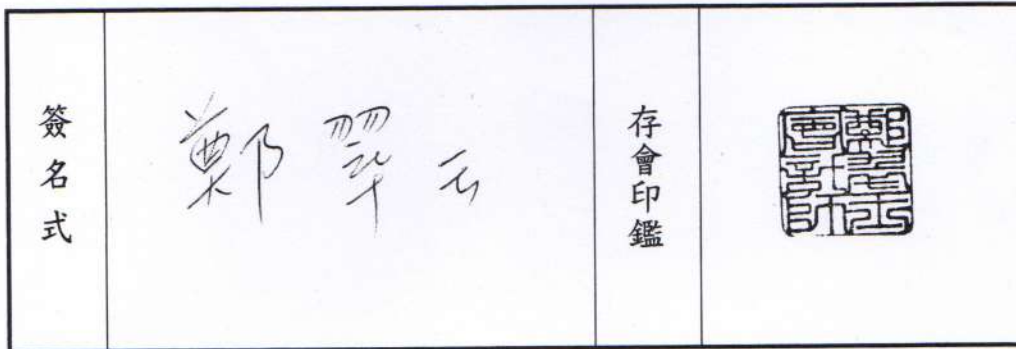 簽名式
鄭翠云
存會印鑑
會計師